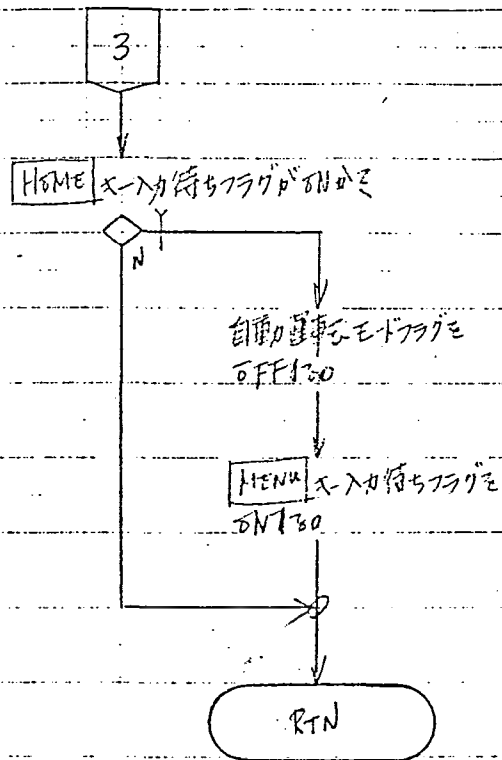 3
HOME キー入力待ちフラグがONかを
Y
N
自動運転モードフラグを
OFFする
MENU キー入力待ちフラグを
ONする
RTN